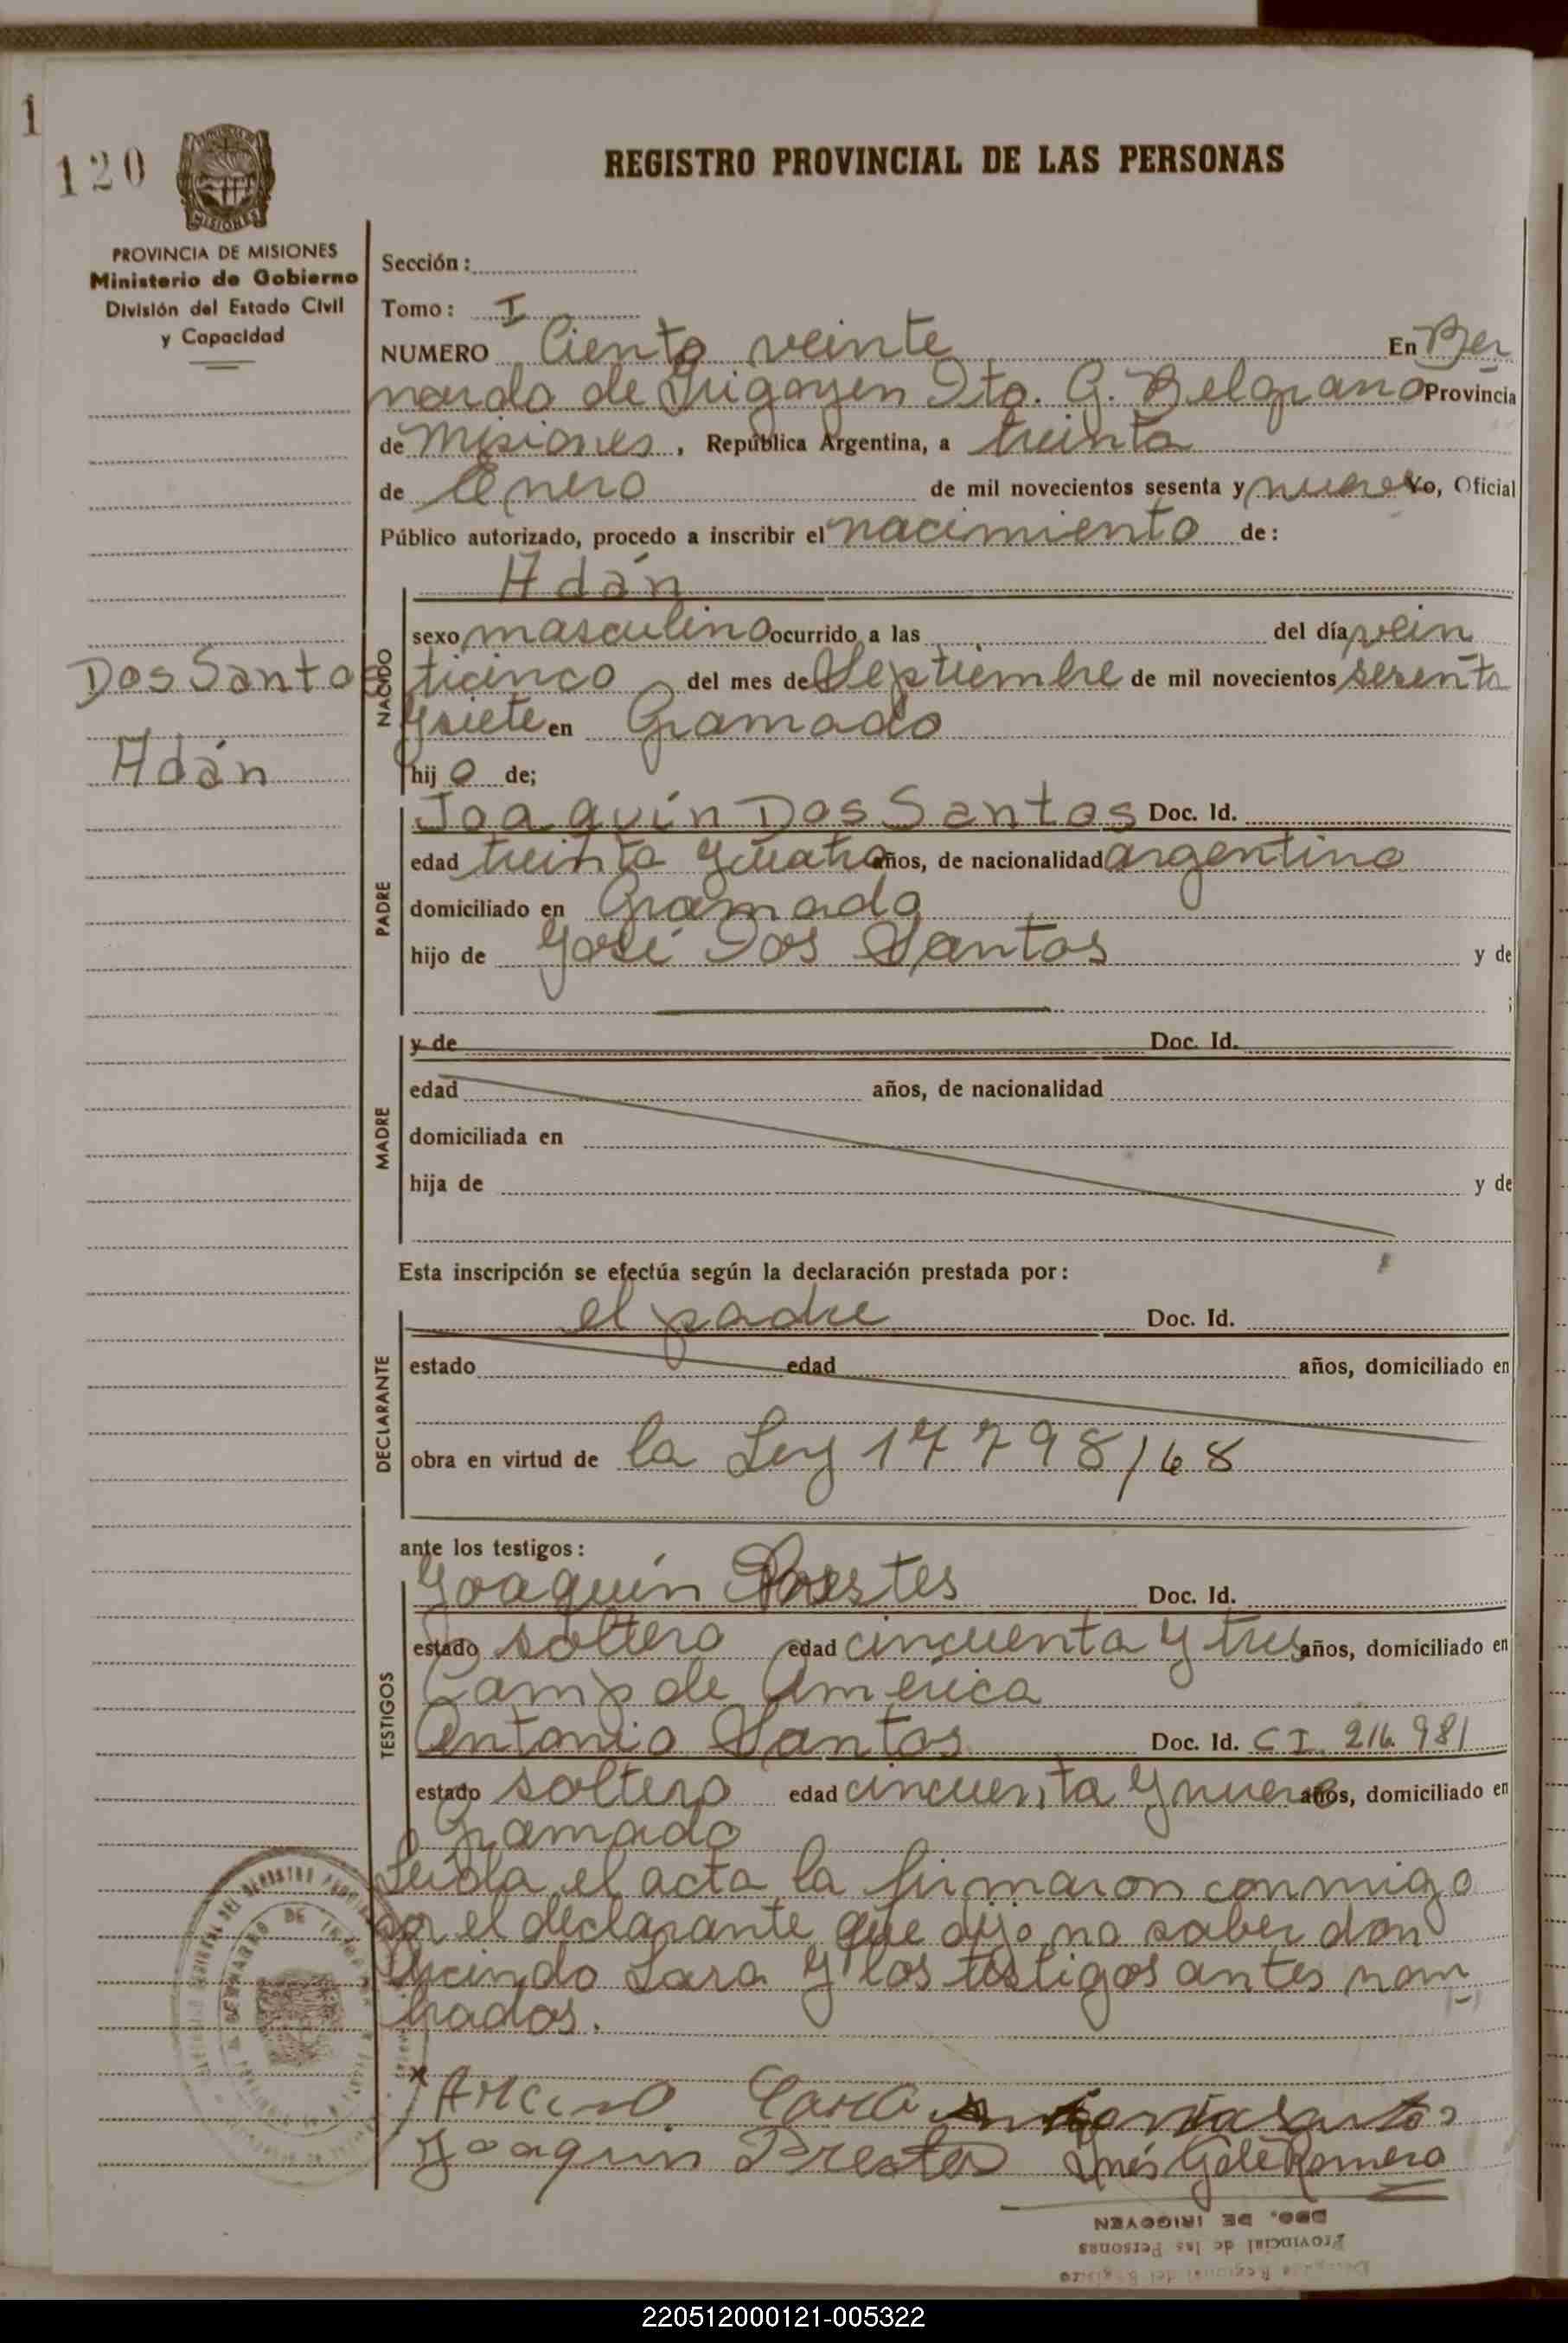 1
120
REGISTRO PROVINCIAL DE LAS PERSONAS
MISIONES
PROVINCIA DE MISIONES
Ministerio de Gobierno
División del Estado Civil
y Capacidad
Sección:
Tomo: I
NUMERO Ciento veinte En Ber
nardo de Irigoyen Dto. G. Belgrano Provincia
de Misiones, República Argentina, a treinta
de Enero de mil novecientos sesenta y nueve Yo, Oficial
Público autorizado, procedo a inscribir el nacimiento de:
Adán
NACIDO
sexo masculino ocurrido a las del día vein
Dos Santos
ticinco del mes de Septiembre de mil novecientos sesenta
y siete en Gramado
Adán
hijo de;
PADRE
Joaquín Dos Santos Doc. Id.
edad treinta y cuatro años, de nacionalidad argentino
domiciliado en Gramado
hijo de José Dos Santos y de
;
MADRE
y de Doc. Id.
edad años, de nacionalidad
domiciliada en
hija de y de
Esta inscripción se efectúa según la declaración prestada por:
DECLARANTE
el padre Doc. Id.
estado edad años, domiciliado en
obra en virtud de la Ley 17798/68
ante los testigos:
TESTIGOS
Joaquín Prestes Doc. Id.
estado soltero edad cincuenta y tres años, domiciliado en
Camp de América
Antonio Santos Doc. Id. C I. 216.981
estado soltero edad cincuenta y nueve años, domiciliado en
Gramado
Leída el acta la firmaron conmigo
por el declarante que dijo no saber don
Lara y los testigos antes nom
brados.
Joaquin Prestes Inés G de Romero
DDO. DE IRIGOYEN
Provincial de las Personas
Regional del Registro
220512000121-005322